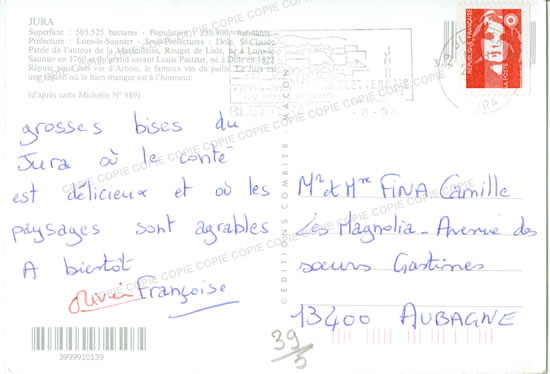 JURA
Superficie : 505.525 hectares - Population : 230.900 habitants
Préfecture : Lons-le-Saunier - Sous-Préfectures : Dole, St-Claude
Patrie de l'auteur de la Marseillaise, Rouget de Lisle, né à Lons-le-
Saunier en 1760 et du grand savant Louis Pasteur, né à Dole en 1822
Réputé pour son vin d'Arbois, le fameux vin de paille. Le Jura est
une région où le bien manger est à l'honneur.
(d'après carte Michelin N° 989)
grosses bises du
Jura où le conté
est délicieux et où les
paysages sont agrables
A bientôt
Olivier Françoise
3999910139
©EDITIONS COMBIER MACON
RÉPUBLIQUE FRANÇAISE
LA POSTE
JURA
Mr et Mme FINA Camille
Les Magnolia - Avenue des
soeurs Gastines
13400 AUBAGNE
39/5
COPIE COPIE COPIE COPIE COPIE COPIE